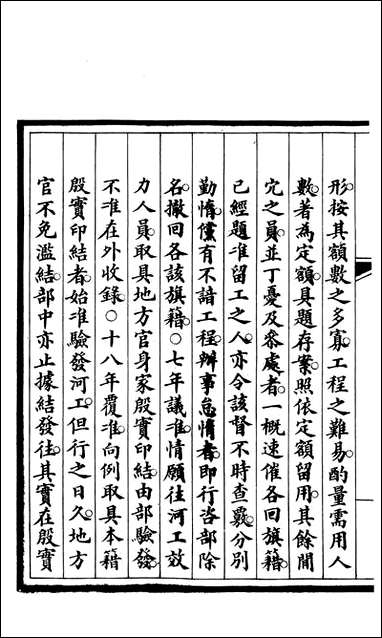 形按其額數之多寡工程之難易酌量需用人
數著為定額具題存案照依定額留用其餘閒
冗之員並丁憂及叅處者一概速催各回旗籍
已經題准留工之人亦令該督不時查覈分別
勤惰儻有不諳工程辦事怠惰者即行咨部除
名撤回各該旗籍○七年議准情願往河工效
力人員取具地方官身家殷實印結由部驗發
不准在外收錄○十八年覆准向例取具本籍
殷實印結者始准驗發河工但行之日久地方
官不免濫結部中亦止據結發往其實在殷實